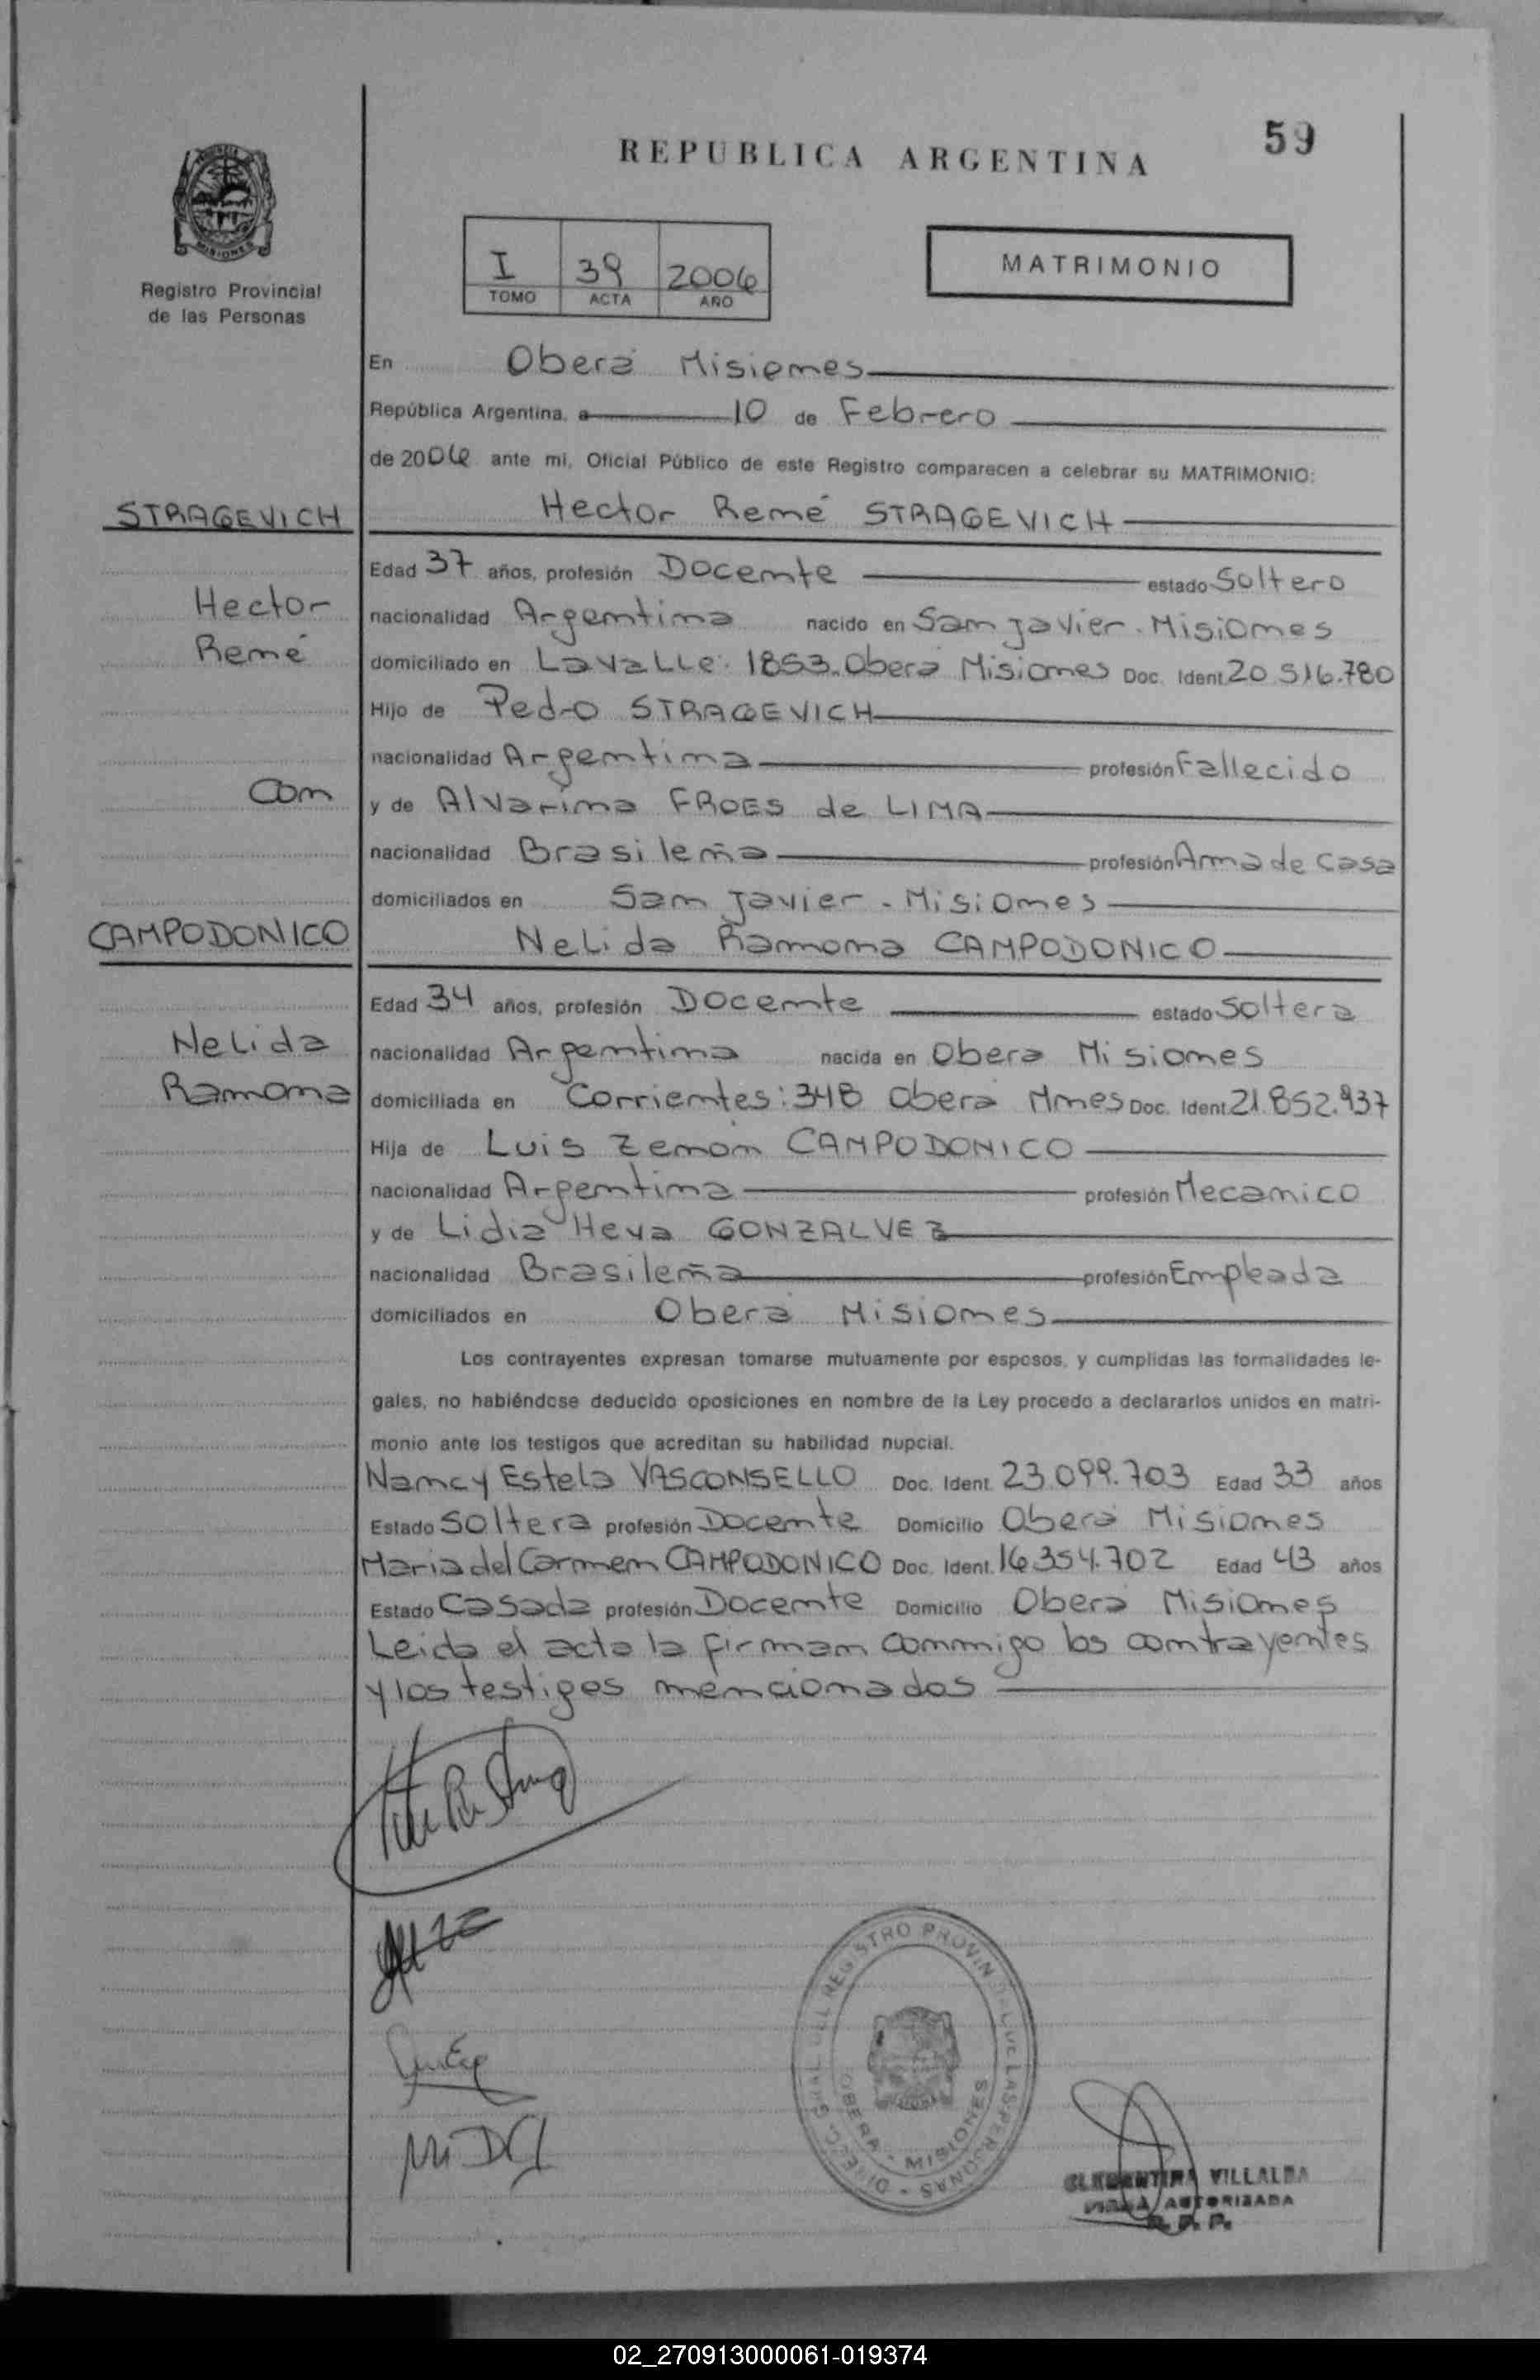 59
REPUBLICA ARGENTINA
MISIONES
Registro Provincial
de las Personas
I 39 2006
TOMO ACTA AÑO
MATRIMONIO
En Oberá Misiones
República Argentina, a 10 de Febrero
de 2006 ante mi, Oficial Público de este Registro comparecen a celebrar su MATRIMONIO:
STRAGEVICH
Hector René STRAGEVICH
Edad 37 años, profesión Docente estado Soltero
Hector
nacionalidad Argentina nacido en San Javier - Misiones
René
domiciliado en LavaLLe: 1853. Oberá Misiones Doc. Ident. 20.516.780
Hijo de Pedro STRAGEVICH
nacionalidad Argentina profesión Fallecido
Con
y de Alvarina FROES de LIMA
nacionalidad Brasileña profesión Ama de Casa
domiciliados en San Javier - Misiones
CAMPODONICO
Nelida Ramona CAMPODONICO
Edad 34 años, profesión Docente estado Soltera
Nelida
nacionalidad Argentina nacida en Obera Misiones
Ramona
domiciliada en Corrientes: 348 Oberá Mnes Doc. Ident. 21.852.937
Hija de Luis Zenón CAMPODONICO
nacionalidad Argentina profesión Mecanico
y de Lidia Heva GONZALVEZ
nacionalidad Brasileña profesión Empleada
domiciliados en Oberá Misiones
Los contrayentes expresan tomarse mutuamente por esposos, y cumplidas las formalidades le-
gales, no habiéndose deducido oposiciones en nombre de la Ley procedo a declararlos unidos en matri-
monio ante los testigos que acreditan su habilidad nupcial.
Nancy Estela VASCONSELLO Doc. Ident. 23.099.703 Edad 33 años
Estado Soltera profesión Docente Domicilio Oberá Misiones
Maria del Carmen CAMPODONICO Doc. Ident. 16.354.702 Edad 43 años
Estado Casada profesión Docente Domicilio Oberá Misiones
Leida el acta la firman conmigo los contrayentes
y los testigos mencionados
REGISTRO PROVINCIAL DE LAS PERSONAS
OBERA - MISIONES
CLEMENTINA VILLALBA
FIRMA AUTORIZADA
R. P. P.
02_270913000061-019374